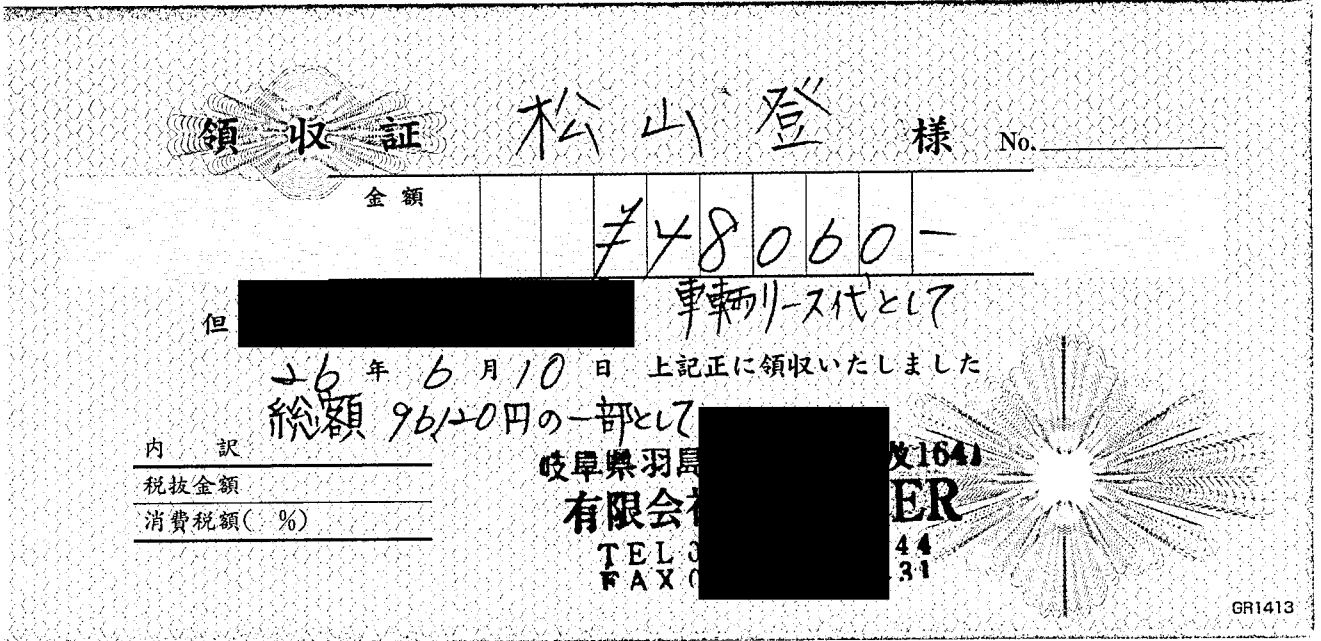 領収証 松山登 様 No.
金額 ¥48060-
但 車輌リース代として
26年6月10日 上記正に領収いたしました
総額 96120円の一部として
内 訳
税抜金額
消費税額( %)
岐阜県羽島 1641
有限会社 ER
TEL 44
FAX 31
GR1413